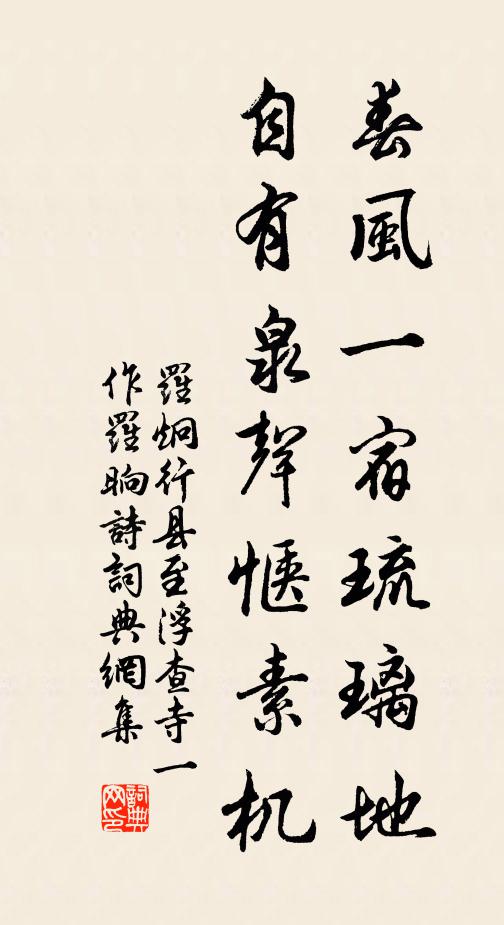 春風一宿琉璃地
自有泉聲愜素机
羅炯行县至浮查寺一
作羅晌詩詞典網集
詞典
网印